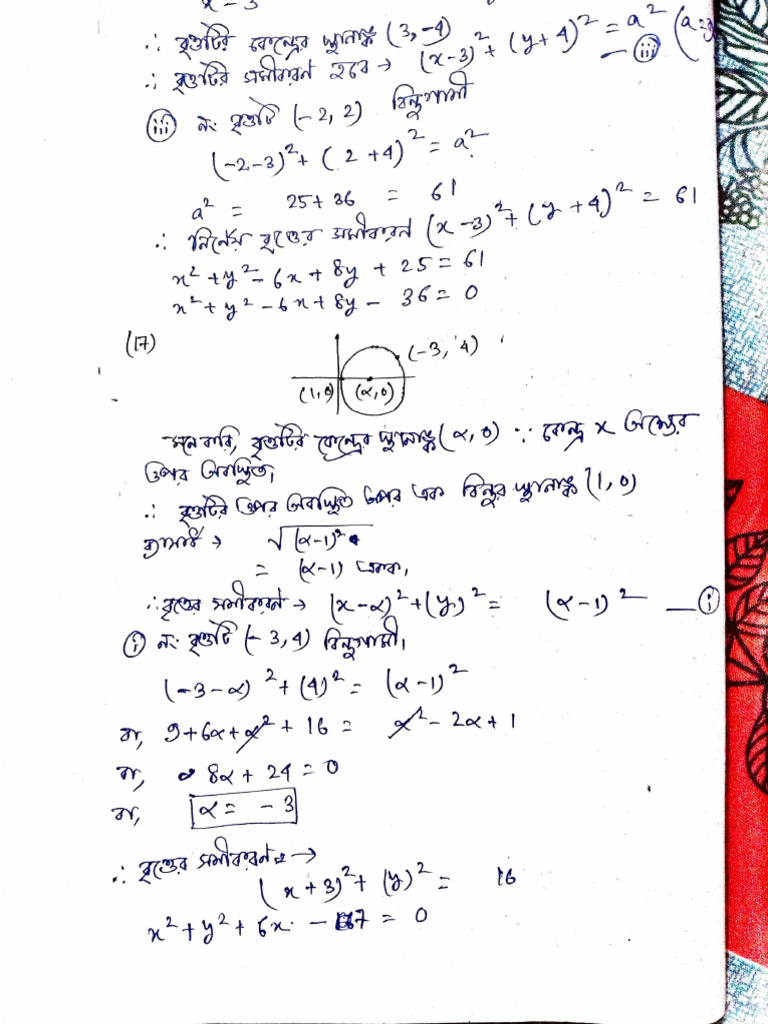 x - 3
∴ বৃত্তটির কেন্দ্রের স্থানাঙ্ক (3, -4)
∴ বৃত্তটির সমীকরণ হবে → (x-3)² + (y+4)² = a² — (iii)
(iii) নং বৃত্তটি (-2, 2) বিন্দুগামী
(-2-3)² + (2+4)² = a²
a² = 25 + 36 = 61
∴ নির্ণেয় বৃত্তের সমীকরণ (x-3)² + (y+4)² = 61
x² + y² - 6x + 8y + 25 = 61
x² + y² - 6x + 8y - 36 = 0
(17)
(-3, 4)
(1,0) (α,0)
মনে করি, বৃত্তটির কেন্দ্রের স্থানাঙ্ক (α, 0) ∵ কেন্দ্র x অক্ষের
উপর অবস্থিত।
∴ বৃত্তটির উপর অবস্থিত অপর এক বিন্দুর স্থানাঙ্ক (1, 0)
ব্যাসার্ধ → √(α-1)²
= (α-1) একক।
∴ বৃত্তের সমীকরণ → (x-α)² + (y)² = (α-1)² — (i)
(i) নং বৃত্তটি (-3, 4) বিন্দুগামী।
(-3-α)² + (4)² = (α-1)²
বা, 9 + 6α + α² + 16 = α² - 2α + 1
বা, 8α + 24 = 0
বা, α = -3
∴ বৃত্তের সমীকরণ →
(x+3)² + (y)² = 16
x² + y² + 6x - 7 = 0